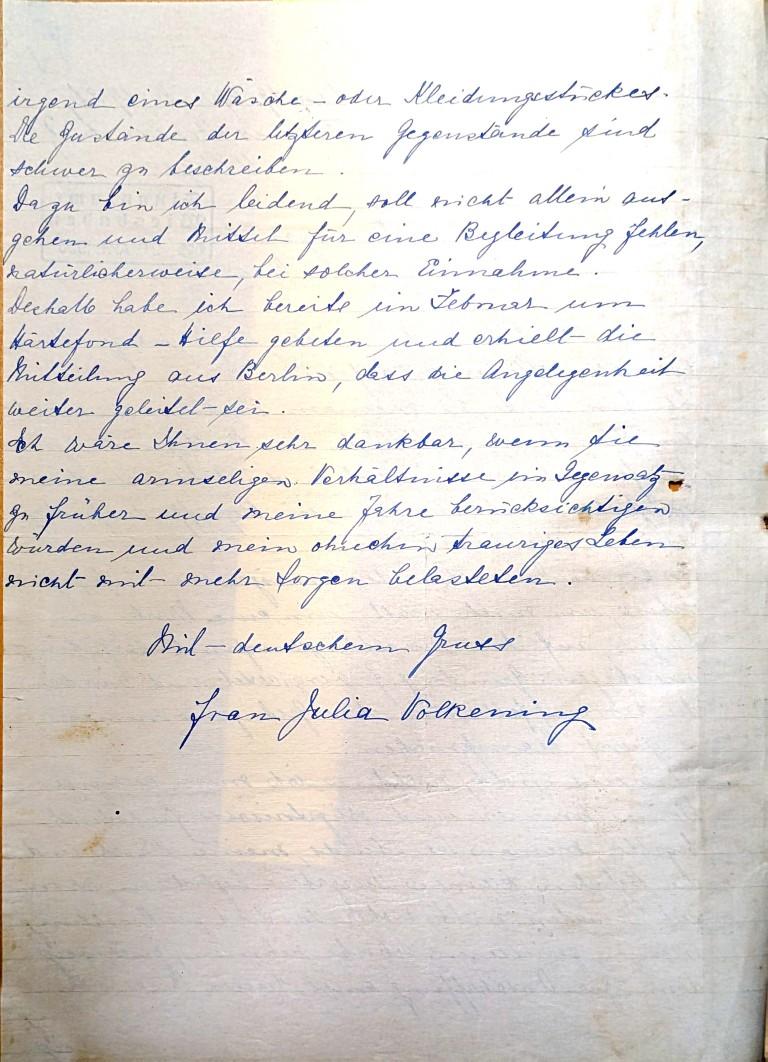 irgend eines Wäsche - oder Kleidungsstückes.
Die Zustände der letzteren Gegenstände sind
schwer zu beschreiben.
Dazu bin ich leidend, soll nicht allein aus-
gehen und Mittel für eine Begleitung fehlen,
natürlicherweise, bei solcher Einnahme.
Deshalb habe ich bereits im Februar um
Härtefond - Hilfe gebeten und erhielt die
Mitteilung aus Berlin, dass die Angelegenheit
weiter geleitet sei.
Ich wäre Ihnen sehr dankbar, wenn Sie
meine armseligen Verhältnisse im Gegensatz
zu früher und meine Jahre berücksichtigen
würden und mein ohnehin trauriges Leben
nicht mit mehr Sorgen belasteten.
Mit deutschem Gruss
Frau Julia Volkening